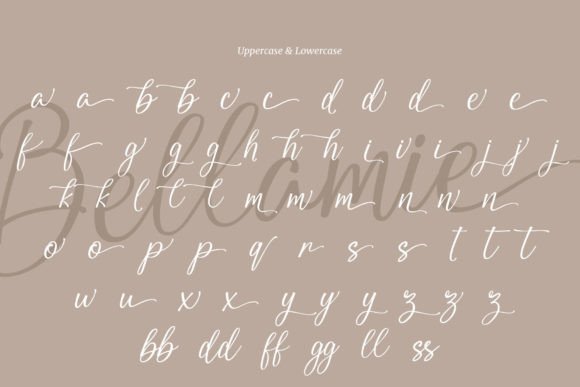 Uppercase & Lowercase
Bellamie
a a b b c c d d d e e
f f g g g h h h i i i j j j
k k l l l m m m n n n
o o p p q r s s t t t
u u x x y y y z z z
bb dd ff gg ll ss